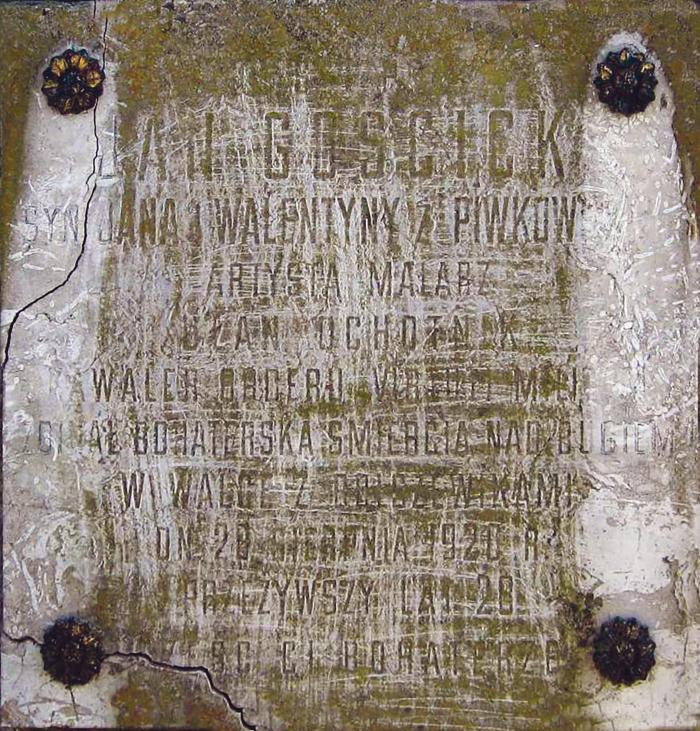 JAN GOŚCICKI
SYN JANA I WALENTYNY Z PIWKOW
ARTYSTA MALARZ
UŁAN OCHOTNIK
KAWALER ORDERU VIRTUTI MILI
ZGINĄŁ BOHATERSKĄ ŚMIERCIĄ NAD BUGIEM
W WALCE Z BOLSZEWIKAMI
DN. 20 SIERPNIA 1920 R.
PRZEŻYWSZY LAT 28
CZEŚĆ CI BOHATERZE